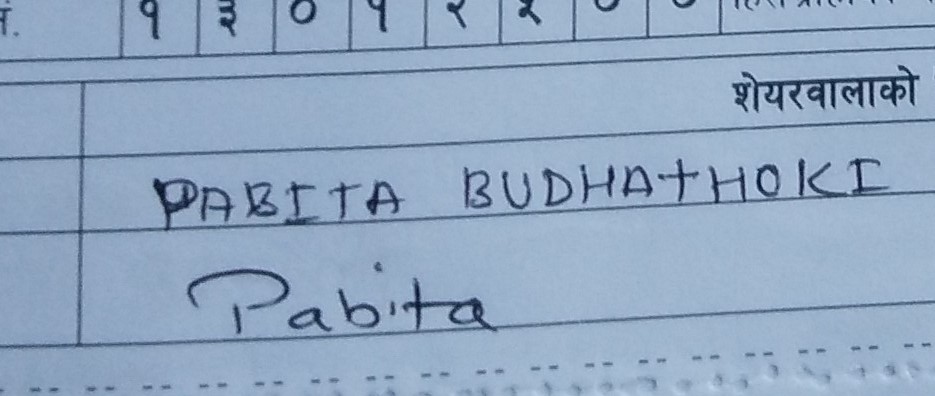 नं. १ ३ ० १ २
शेयरवालाको
PABITA BUDHATHOKI
Pabita